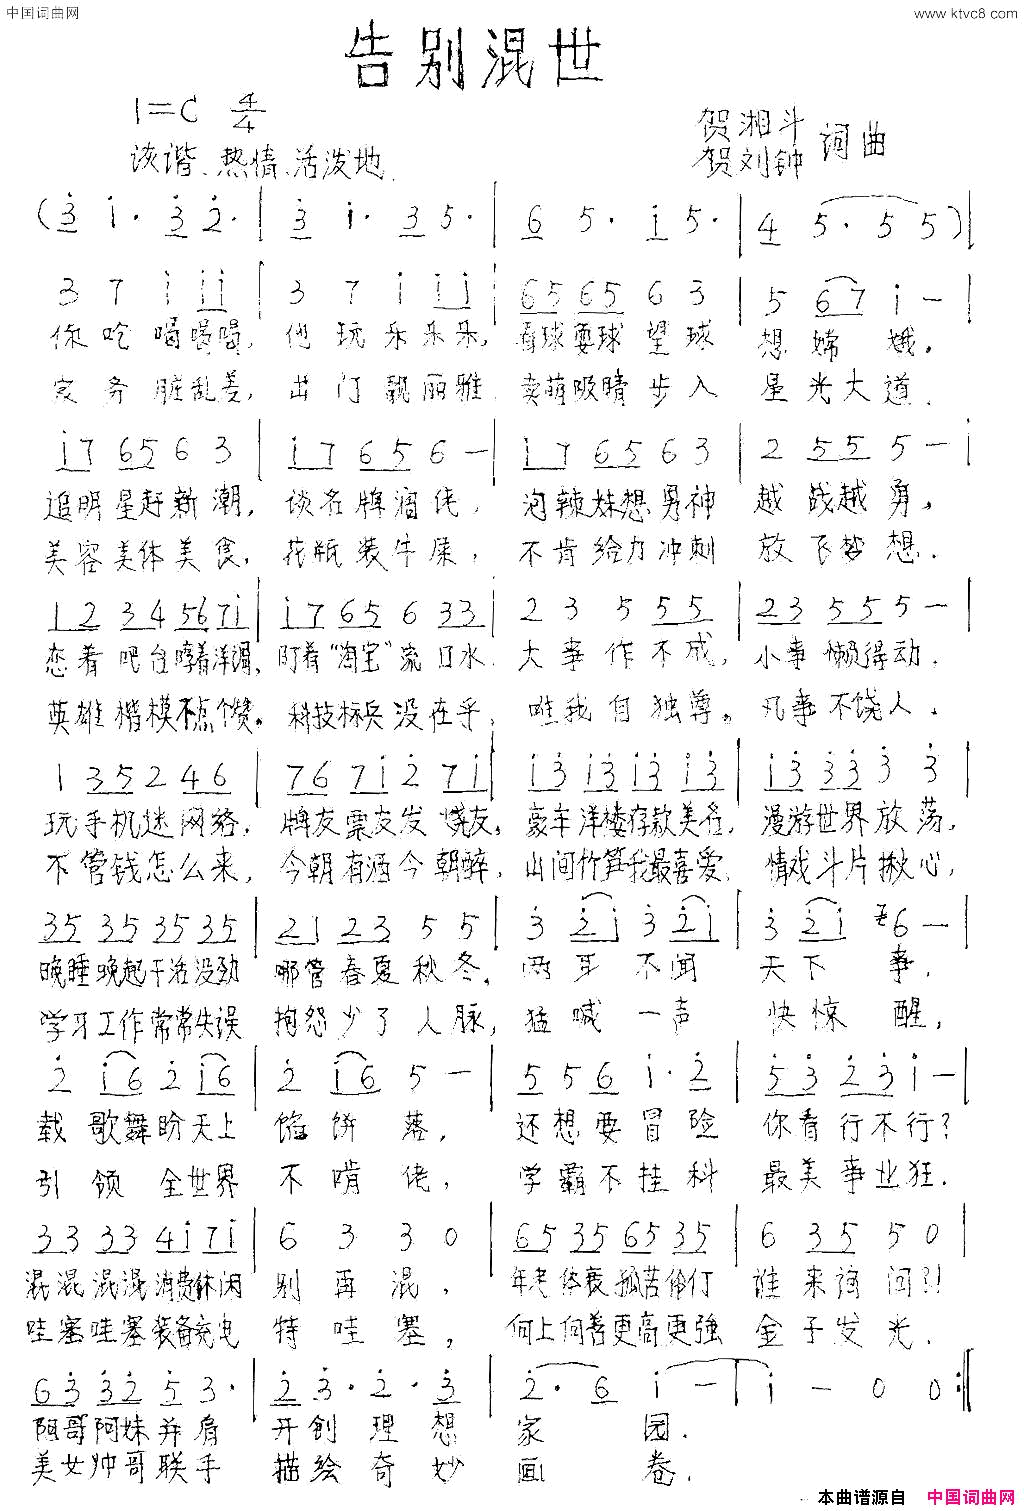 中国词曲网
www.ktvc8.com
告别混世
1=C 4/4
贺湘斗
贺刘钟 词曲
诙谐、热情、活泼地.
(3 i· 3 2· | 3 i· 3 5· | 6 5· i 5· | 4 5· 5 5 )|
3 7 i i i | 3 7 i i i | 65 65 6 3 | 5 67 i — |
你吃喝喝喝, 他玩乐乐乐, 看球耍球望球 想嫦娥.
家务脏乱差, 出门靓丽雅. 卖萌吸睛步入 星光大道.
i7 65 6 3 | i7 65 6 — | i7 65 6 3 | 2 55 5 — |
追明星赶新潮, 谈名牌 佬, 泡辣妹想男神 越战越勇,
美容美体美食, 花瓶装牛屎, 不肯给力冲刺 放飞梦想.
12 34 567i | i7 65 6 33 | 2 3 5 55 | 23 55 5 — |
恋着吧台哼着洋调, 盯着“淘宝”流口水. 大事作不成, 小事懒得动.
英雄楷模不点个赞。 科技标兵没在乎, 唯我自独尊。 凡事不饶人.
1 35 2 46 | 76 7i 2 7i | i3 i3 i3 i3 | i3 33 3 3 |
玩手机迷网络, 牌友票友发烧友, 豪车洋楼存款美名, 漫游世界放荡,
不管钱怎么来, 今朝有酒今朝醉, 山间竹笋我最喜爱, 情戏斗片揪心,
35 35 35 35 | 21 23 5 5 | 3 2i 3 2i | 3 2i 6 — |
晚睡晚起干活没劲 哪管春夏秋冬, 两耳不闻 天下事.
学习工作常常失误 抱怨少了人脉, 猛喊一声 快惊醒,
2 i6 2 i6 | 2 i6 5 — | 5 5 6 i· 2 | 5 3 2 3 i — |
载歌舞盼天上 馅饼落, 还想要冒险 你看行不行?
引领全世界 不啃佬, 学霸不挂科 最美事业狂.
33 33 4i 7i | 6 3 3 0 | 65 35 65 35 | 6 35 5 0 |
混混混混消费休闲 别再混, 年老体衰孤苦伶仃 谁来询问?!
哇塞哇塞装备充电 特哇塞, 向上向善更高更强 金子发光.
6 3 3 2 5 3· | 2 3· 2· 3 | 2· 6 i — | i — 0 0 :‖
阿哥阿妹并肩 开创理想 家园.
美女帅哥联手 描绘奇妙 画卷.
本曲谱源自 中国词曲网